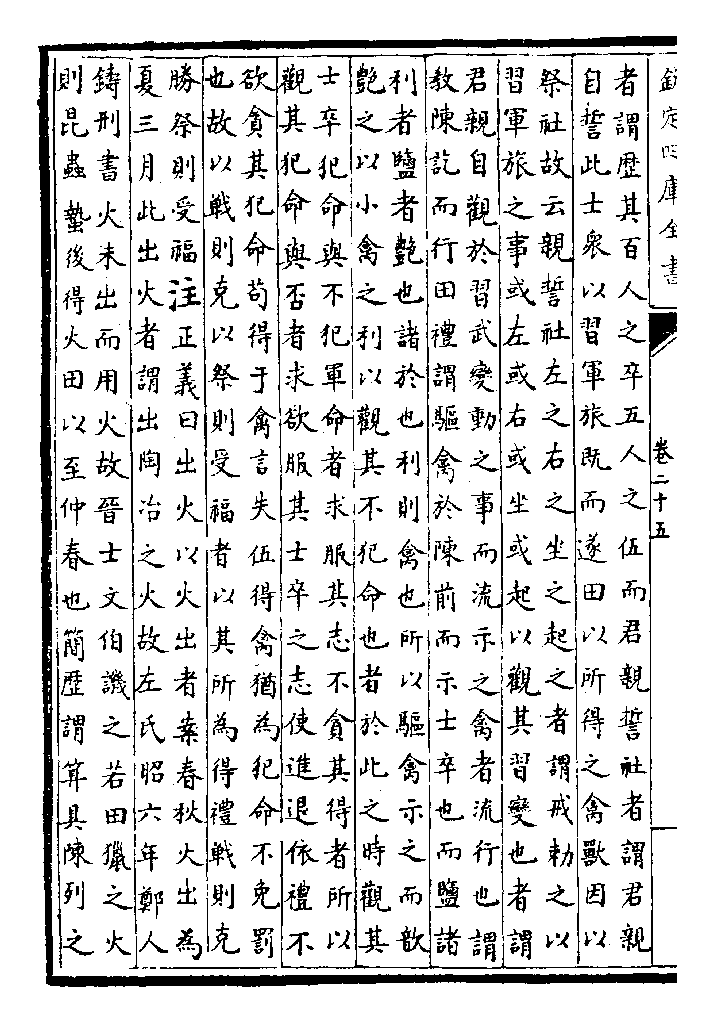 欽定四庫全書
卷二十五
者謂歴其百人之卒五人之伍而君親誓社者謂君親
自誓此士衆以習軍旅既而遂田以所得之禽獸因以
祭社故云親誓社左之右之坐之起之者謂戒勅之以
習軍旅之事或左或右或坐或起以觀其習變也者謂
君親自觀於習武變動之事而流示之禽者流行也謂
教陳訖而行田禮謂驅禽於陳前而示士卒也而鹽諸
利者鹽者艶也諸於也利則禽也所以驅禽示之而歆
艶之以小禽之利以觀其不犯命也者於此之時觀其
士卒犯命與不犯軍命者求服其志不貪其得者所以
觀其犯命與否者求欲服其士卒之志使進退依禮不
欲貪其犯命苟得于禽言失伍得禽猶為犯命不免罰
也故以戰則克以祭則受福者以其所為得禮戰則克
勝祭則受福注正義曰出火以火出者案春秋火出為
夏三月此出火者謂出陶冶之火故左氏昭六年鄭人
鑄刑書火未出而用火故晉士文伯譏之若田獵之火
則昆蟲蟄後得火田以至仲春也簡歴謂算具陳列之